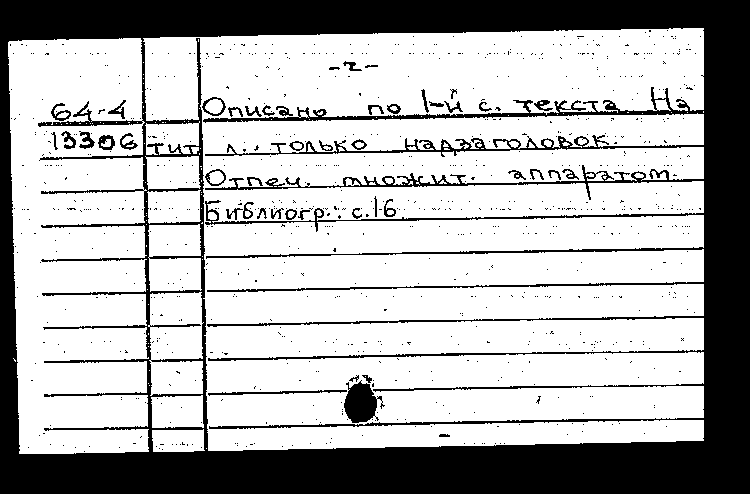 -2-
64-4 Описано по 1-й с. текста На
13306 тит л.: только надзаголовок.
Отпеч. множит. аппаратом.
Библиогр.: с.16